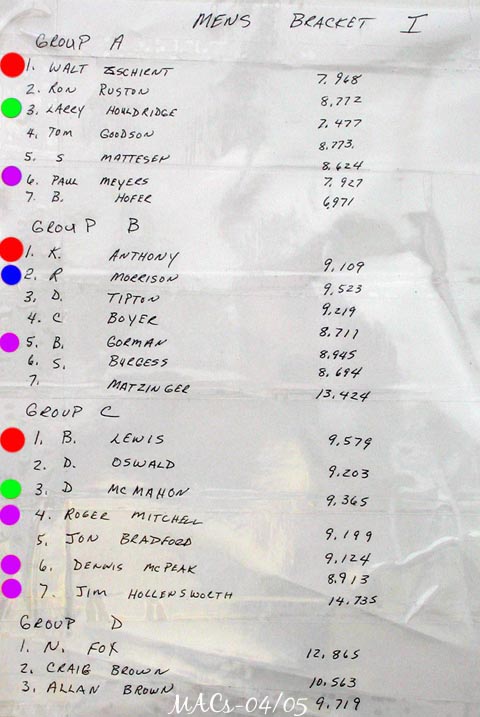 MENS BRACKET I
GROUP A
1. WALT ZSCHIRNT 7.968
2. RON RUSTON 8.772
3. LARRY HOULDRIDGE 7.477
4. TOM GOODSON 8.773.
5. S MATTESEN 8.624
6. PAUL MEYERS 7.927
7. B. HOFER 6,971
GROUP B
1. K. ANTHONY 9.109
2. R MORRISON 9.523
3. D. TIPTON 9.219
4. C BOYER 8.711
5. B. GORMAN 8.945
6. S. BURGESS 8.694
7. MATZINGER 13.424
GROUP C
1. B. LEWIS 9.579
2. D. OSWALD 9.203
3. D MCMAHON 9.365
4. ROGER MITCHELL 9.199
5. JON BRADFORD 9.124
6. DENNIS MCPEAK 8.913
7. JIM HOLLENSWORTH 14.735
GROUP D
1. N. FOX 12.865
2. CRAIG BROWN 10.563
3. ALLAN BROWN 9.719
MACs-04/05